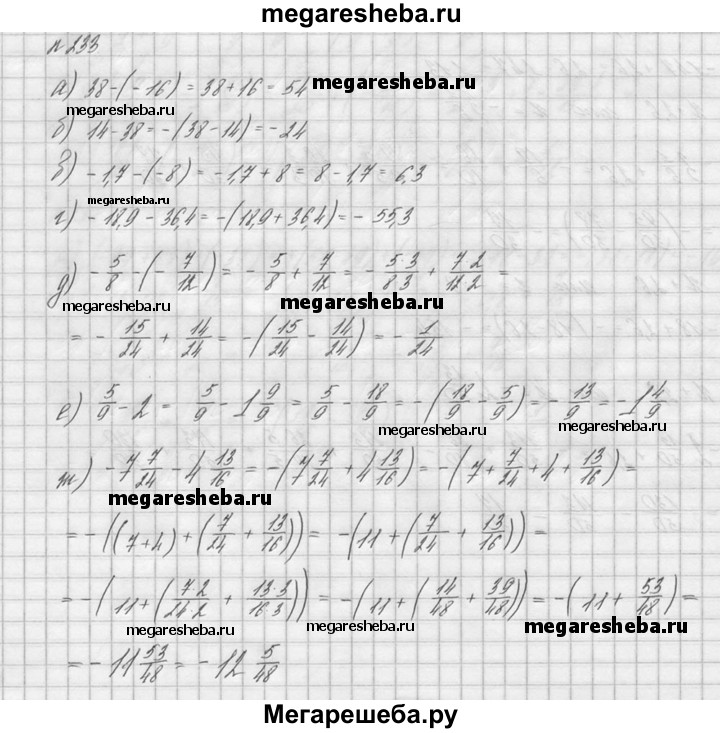 megaresheba.ru
№ 233
а) 38-(-16) = 38+16 = 54
megaresheba.ru
megaresheba.ru
б) 14-38 = -(38-14) = -24
в) -1,7-(-8) = -1,7+8 = 8-1,7 = 6,3
megaresheba.ru
г) -18,9-36,4 = -(18,9+36,4) = -55,3
д) -5/8-(-7/12) = -5/8+7/12 = -5·3/8·3+7·2/12·2 =
megaresheba.ru
= -15/24+14/24 = -(15/24-14/24) = -1/24
е) 5/9-2 = 5/9-1 9/9 = 5/9-18/9 = -(18/9-5/9) = -13/9 = -1 4/9
megaresheba.ru
megaresheba.ru
ж) -7 7/24-4 13/16 = -(7 7/24+4 13/16) = -(7+7/24+4+13/16) =
megaresheba.ru
= -((7+4)+(7/24+13/16)) = -(11+(7/24+13/16)) =
= -(11+(7·2/24·2+13·3/16·3)) = -(11+(14/48+39/48)) = -(11+53/48) =
megaresheba.ru
megaresheba.ru
megaresheba.ru
= -11 53/48 = -12 5/48
Мегарешеба.ру